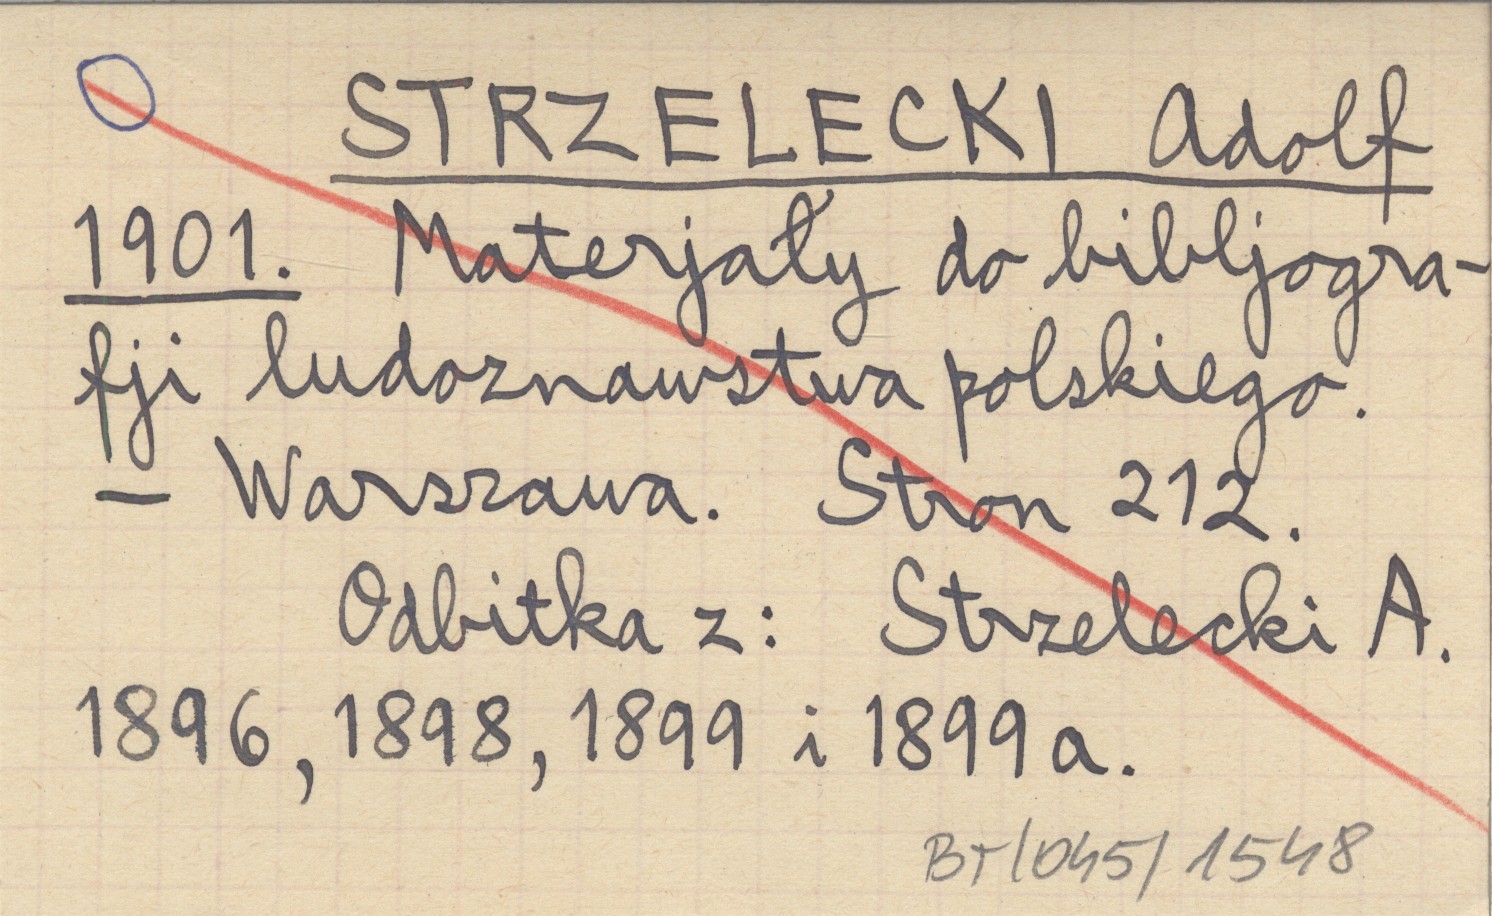 STRZELECKI Adolf
1901. Materjały do bibljogra-
fji ludoznawstwa polskiego.
— Warszawa. Stron 212.
Odbitka z: Strzelecki A.
1896, 1898, 1899 i 1899a.
BT/045/1548